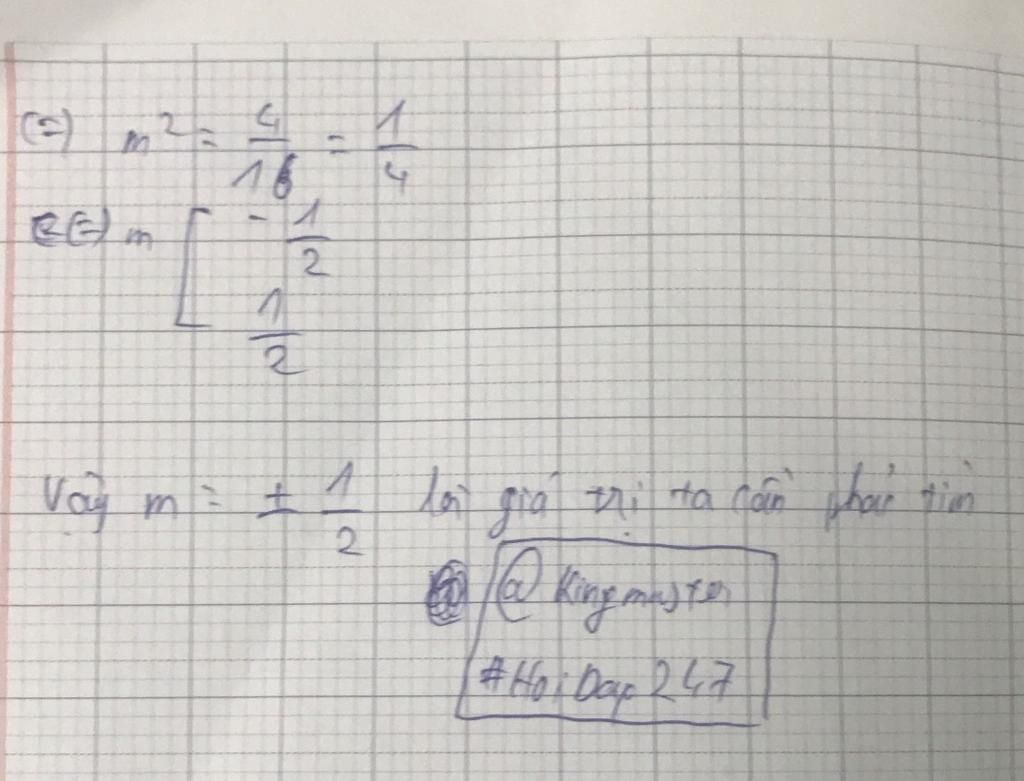 (=) m² = 4/16 = 1/4
(=) m [ -1/2
1/2
Vậy m = ± 1/2 là giá trị ta cần phải tìm
@ Kingmaster
#HoiDap247